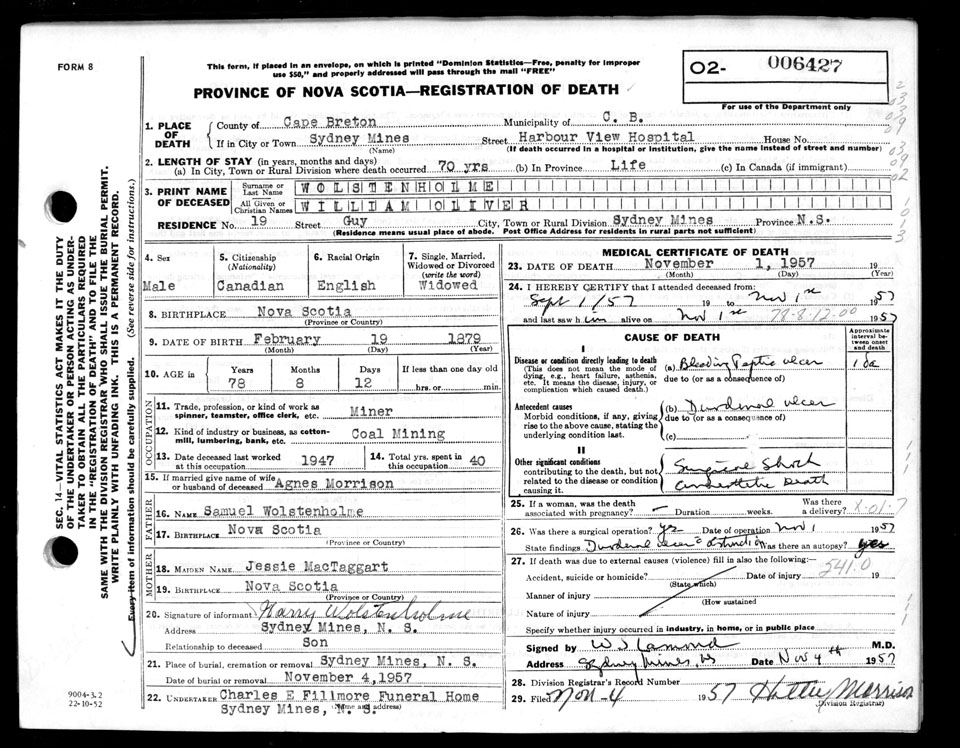 FORM 8
This form, if placed in an envelope, on which is printed "Dominion Statistics—Free, penalty for improper
use $50," and properly addressed will pass through the mail "FREE"
PROVINCE OF NOVA SCOTIA—REGISTRATION OF DEATH
O2- 006427
For use of the Department only
1. PLACE OF DEATH
County of Cape Breton Municipality of C. B.
If in City or Town Sydney Mines Street Harbour View Hospital House No.
(Name) (If death occurred in a hospital or institution, give the name instead of street and number)
2. LENGTH OF STAY (in years, months and days)
(a) In City, Town or Rural Division where death occurred 70 yrs (b) In Province Life (c) In Canada (if immigrant)
3. PRINT NAME OF DECEASED
Surname or Last Name WOLSTENHOLME
All Given or Christian Names WILLIAM OLIVER
RESIDENCE No. 19 Street Guy City, Town or Rural Division Sydney Mines Province N.S.
(Residence means usual place of abode. Post Office Address for residents in rural parts not sufficient)
SEC. 14—VITAL STATISTICS ACT MAKES IT THE DUTY
OF THE UNDERTAKER OR PERSON ACTING AS UNDER-
TAKER TO OBTAIN ALL THE PARTICULARS REQUIRED
IN THE "REGISTRATION OF DEATH" AND TO FILE THE
SAME WITH THE DIVISION REGISTRAR WHO SHALL ISSUE THE BURIAL PERMIT.
WRITE PLAINLY WITH UNFADING INK. THIS IS A PERMANENT RECORD.
Every item of information should be carefully supplied. (See reverse side for instructions.)
4. Sex
Male
5. Citizenship
(Nationality)
Canadian
6. Racial Origin
English
7. Single, Married,
Widowed or Divorced
(write the word)
Widowed
8. BIRTHPLACE Nova Scotia
(Province or Country)
9. DATE OF BIRTH February 19 1879
(Month) (Day) (Year)
10. AGE in
Years Months Days If less than one day old
78 8 12 hrs. or min.
OCCUPATION
11. Trade, profession, or kind of work as
spinner, teamster, office clerk, etc. Miner
12. Kind of industry or business, as cotton-
mill, lumbering, bank, etc. Coal Mining
13. Date deceased last worked
at this occupation 1947
14. Total yrs. spent in
this occupation 40
15. If married give name of wife
or husband of deceased Agnes Morrison
FATHER
16. NAME Samuel Wolstenholme
17. BIRTHPLACE Nova Scotia
(Province or Country)
MOTHER
18. MAIDEN NAME Jessie MacTaggart
19. BIRTHPLACE Nova Scotia
(Province or Country)
20. Signature of informant Harry Wolstenholme
Address Sydney Mines, N. S.
Relationship to deceased Son
21. Place of burial, cremation or removal Sydney Mines, N. S.
Date of burial or removal November 4,1957
22. UNDERTAKER Charles E Fillmore Funeral Home
Sydney Mines, N. S.
(Name and address)
9004-3.2
22-10-52
MEDICAL CERTIFICATE OF DEATH
23. DATE OF DEATH November 1, 1957 19
(Month) (Day) (Year)
24. I HEREBY CERTIFY that I attended deceased from:
Sept 1/57 19 to Nov 1st 1957
and last saw him alive on Nov 1st 1957
78-8-12-00
CAUSE OF DEATH
Approximate
interval be-
tween onset
and death
I
Disease or condition directly leading to death
(This does not mean the mode of
dying, e.g., heart failure, asthenia,
etc. It means the disease, injury, or
complication which caused death.)
(a) Bleeding Peptic ulcer 1 da
due to (or as a consequence of)
Antecedent causes
Morbid conditions, if any, giving
rise to the above cause, stating the
underlying condition last.
(b) Duodenal ulcer
due to (or as a consequence of)
(c)
II
Other significant conditions
contributing to the death, but not
related to the disease or condition
causing it.
Surgical Shock
Anaesthetic Death
25. If a woman, was the death
associated with pregnancy? — Duration weeks. Was there
a delivery?
X-01-7
26. Was there a surgical operation? yes Date of operation Nov 1 1957
State findings Duodenal ulcer c obstruction Was there an autopsy? yes
27. If death was due to external causes (violence) fill in also the following:—
541.0
Accident, suicide or homicide? Date of injury 19
(State which)
Manner of injury
(How sustained
Nature of injury
Specify whether injury occurred in industry, in home, or in public place
Signed by M.D.
Address Sydney Mines, NS Date Nov 4th 1957
28. Division Registrar's Record Number
29. Filed Nov 4 1957 Hattie Morrison
(Division Registrar)